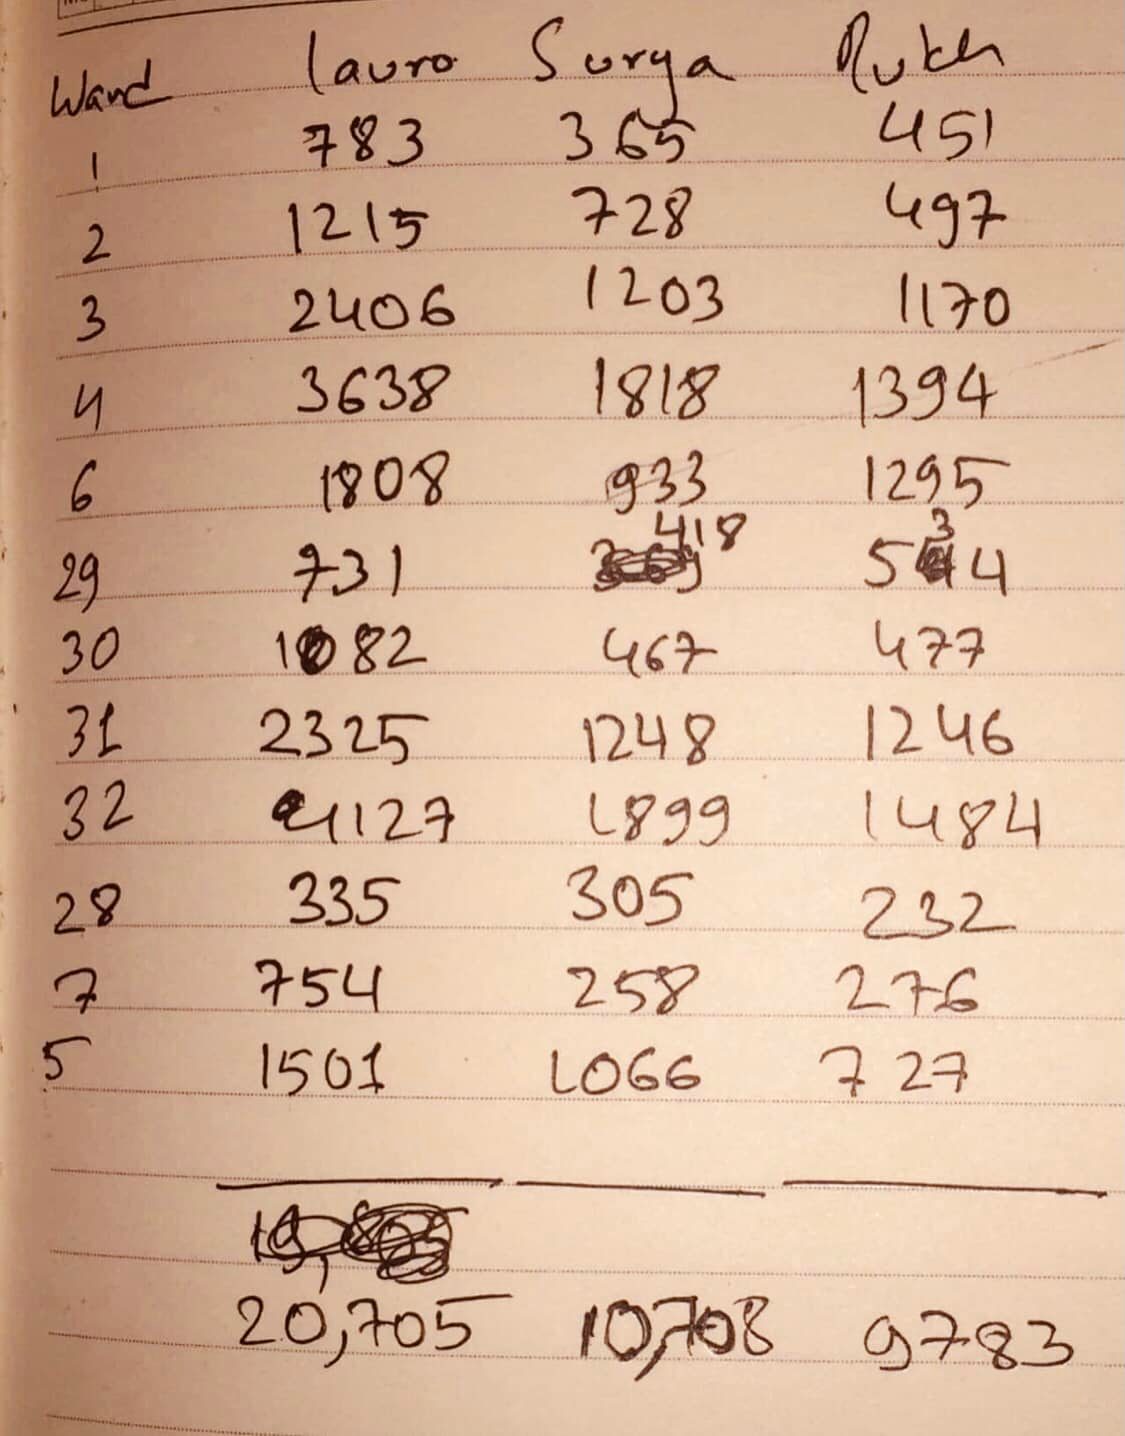 Ward lauro Surya Rukh
1 783 365 451
2 1215 728 497
3 2406 1203 1170
4 3638 1818 1394
6 1808 933 1295
29 731 418 534
30 1082 467 477
31 2325 1248 1246
32 4127 1899 1484
28 335 305 232
7 754 258 276
5 1501 1066 727
20,705 10,708 9783